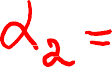 α₂ =